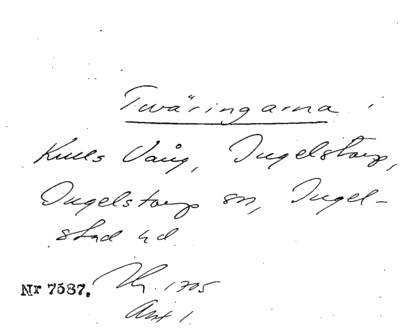 Twäringarna
Kulls Vång, Ingelstorp,
Ingelstorp sn, Ingel-
stad hd
Nr 7587. 1705
Akt 1